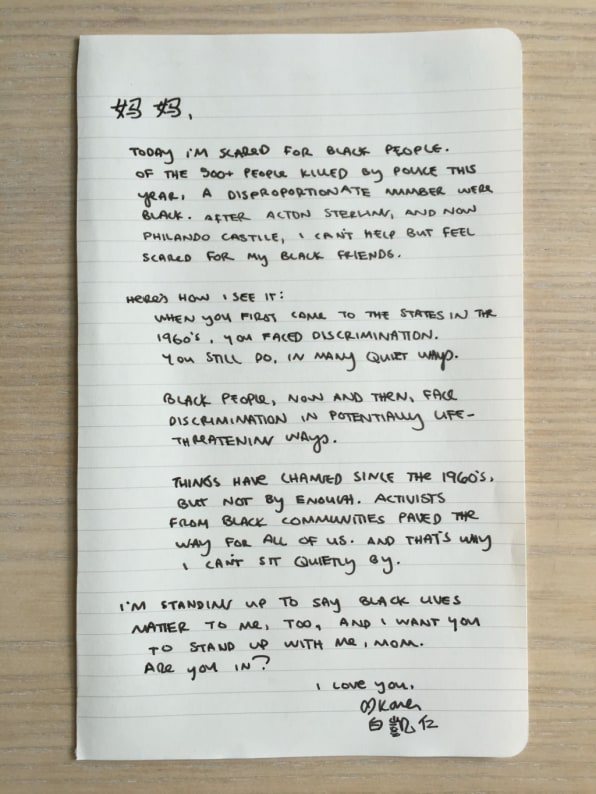 妈 妈,
TODAY I'M SCARED FOR BLACK PEOPLE.
OF THE 500+ PEOPLE KILLED BY POLICE THIS
YEAR, A DISPROPORTIONATE NUMBER WERE
BLACK. AFTER ALTON STERLING, AND NOW
PHILANDO CASTILE, I CAN'T HELP BUT FEEL
SCARED FOR MY BLACK FRIENDS.
HERE'S HOW I SEE IT:
WHEN YOU FIRST CAME TO THE STATES IN THE
1960'S, YOU FACED DISCRIMINATION.
YOU STILL DO, IN MANY QUIET WAYS.
BLACK PEOPLE, NOW AND THEN, FACE
DISCRIMINATION IN POTENTIALLY LIFE-
THREATENING WAYS.
THINGS HAVE CHANGED SINCE THE 1960'S,
BUT NOT BY ENOUGH. ACTIVISTS
FROM BLACK COMMUNITIES PAVED THE
WAY FOR ALL OF US. AND THAT'S WHY
I CAN'T SIT QUIETLY BY.
I'M STANDING UP TO SAY BLACK LIVES
MATTER TO ME, TOO, AND I WANT YOU
TO STAND UP WITH ME, MOM.
ARE YOU IN?
I LOVE YOU,
白凱仁